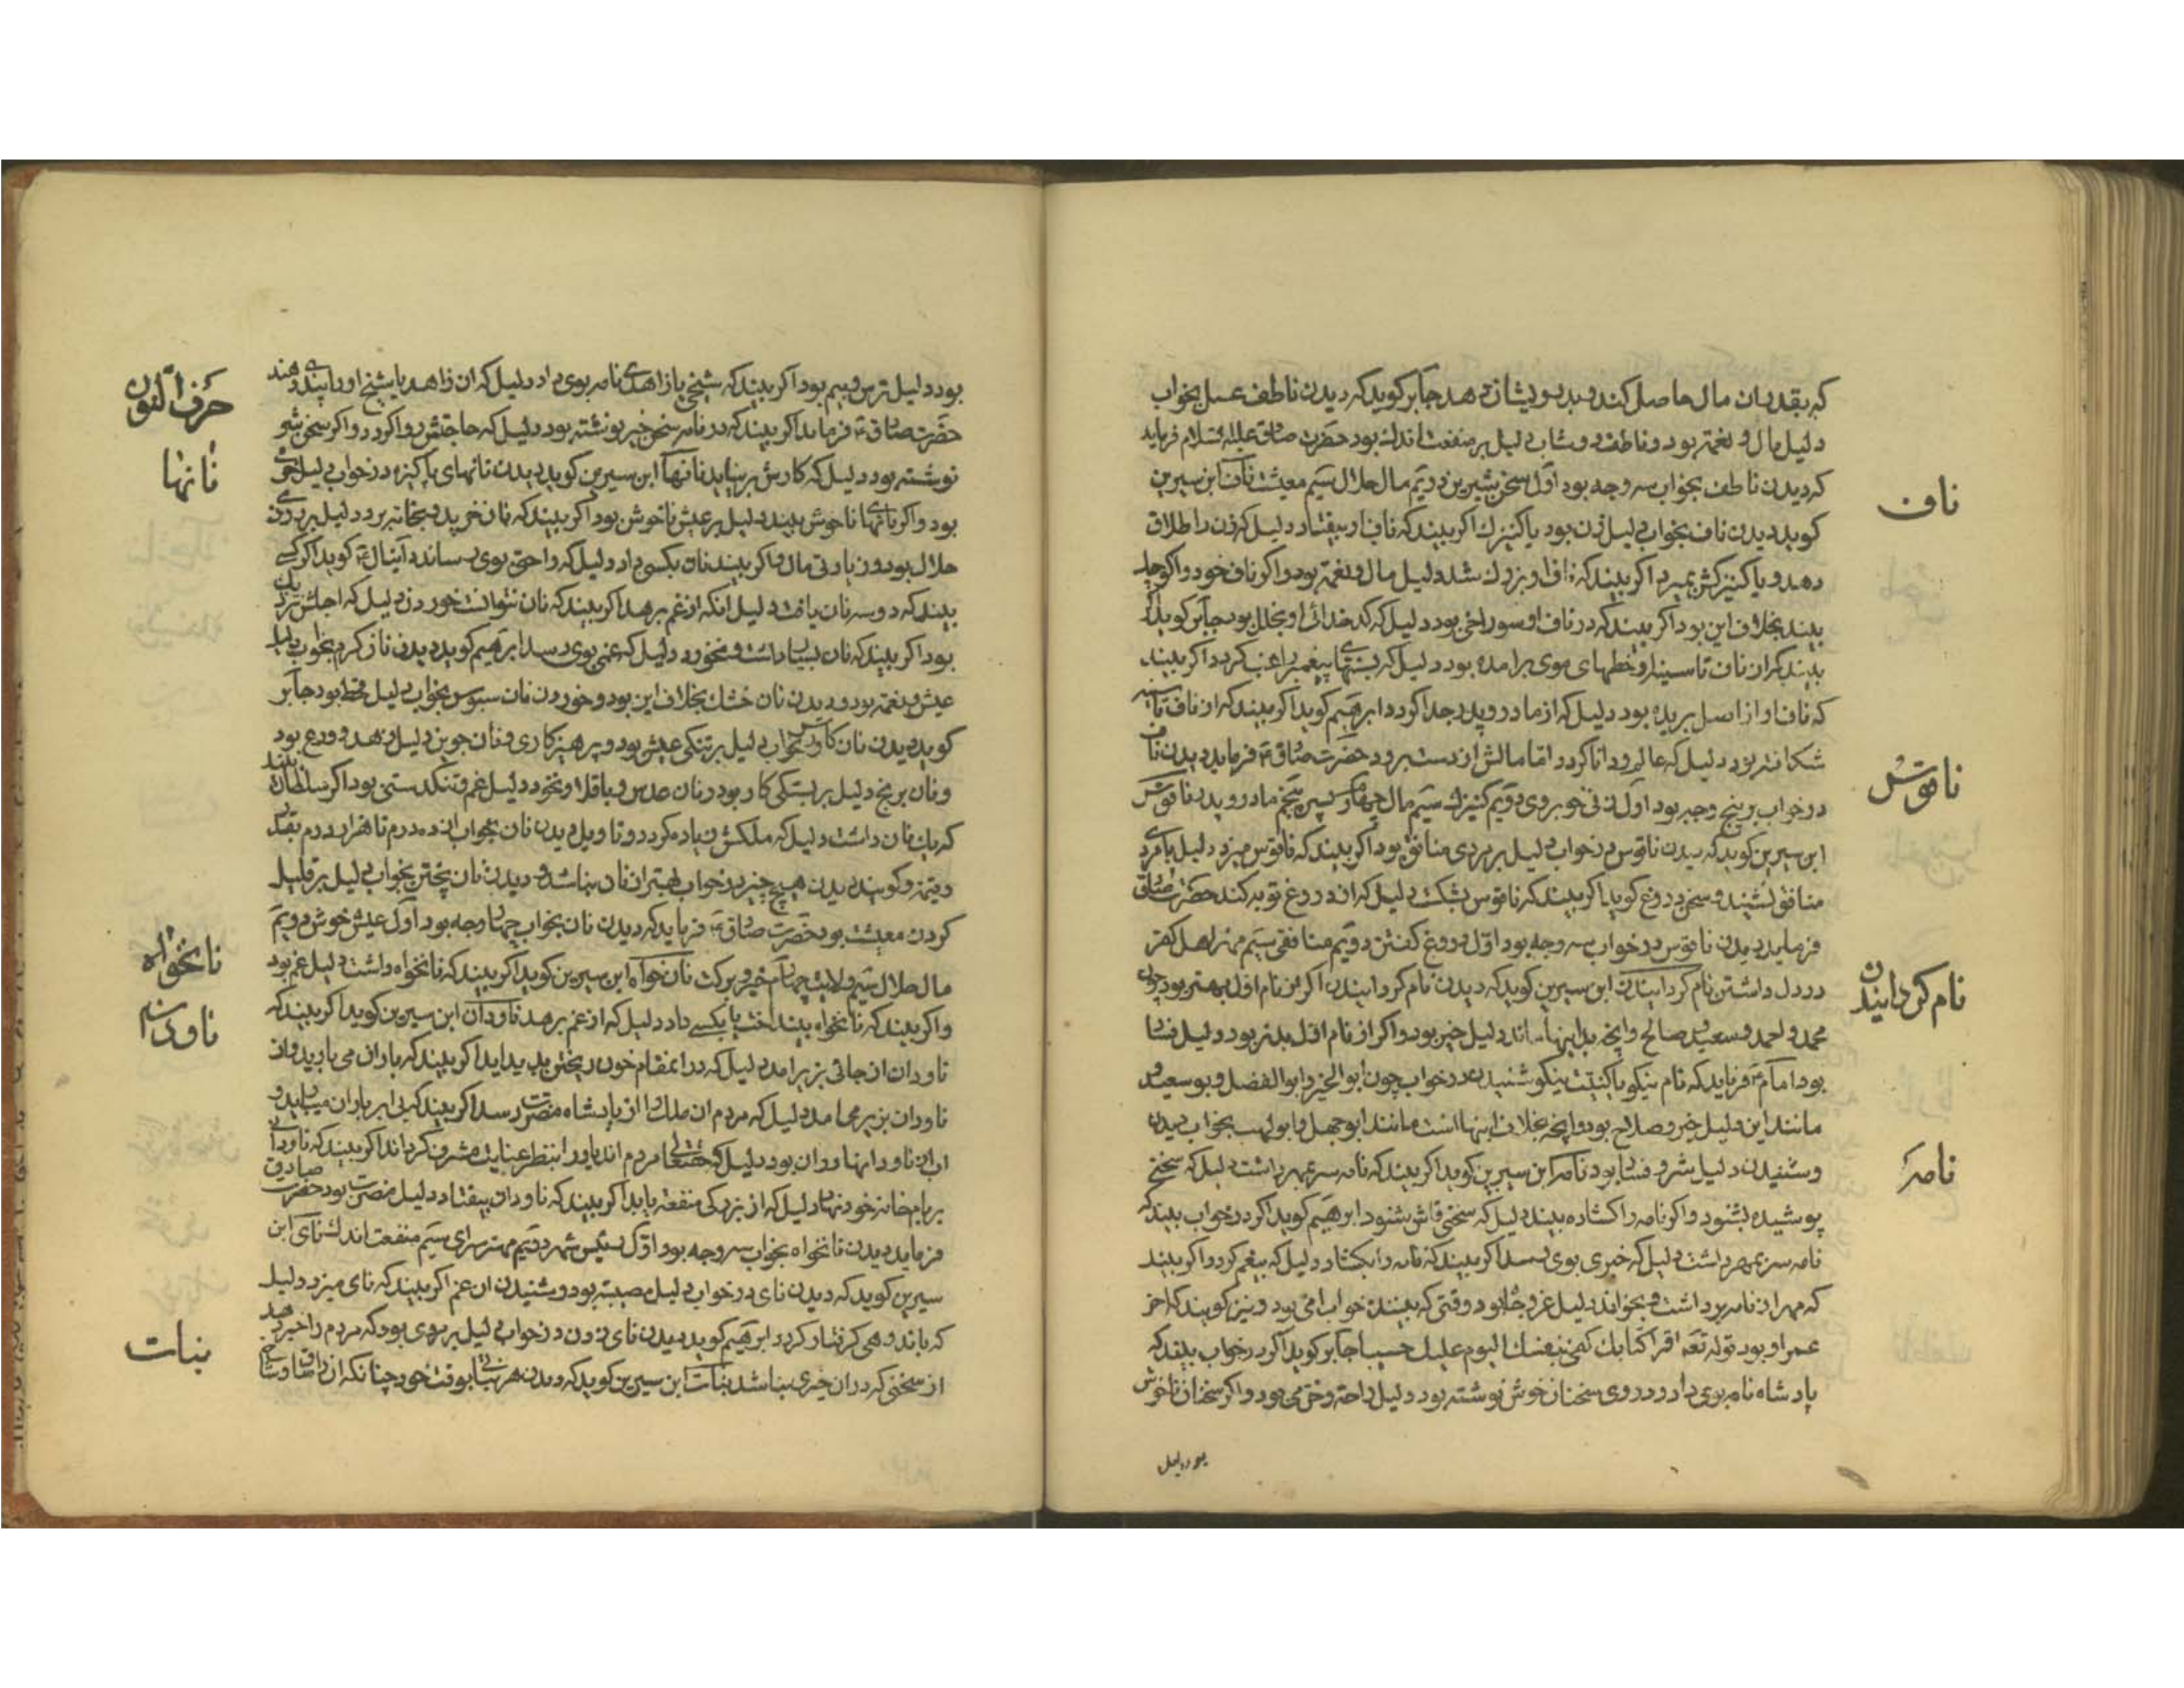 که بقدر ان مال حاصل کند و بدرویشان دهد جابر کوید که دیدن ناطف عسل بخواب
دلیل مال و نعمت بود و ناطف دوشاب دلیل بر منفعت اندک بود حضرت صادق علیه السلام فرماید
که دیدن ناطف بخواب سه وجه بود اول سخن شیرین دویم مال حلال سیم معیشت ناف ابن سیرین
ناف
کوید دیدن ناف بخواب دلیل زن بود یا کنیزک اکر بیند که ناف او بیفتاد دلیل که زن را طلاق
دهد و یا کنیزکش بمیرد اکر بیند که ناف او بزرک شد دلیل مال و نعمت بود و اکر ناف خود را کوچک
بیند بخلاف این بود اکر بیند که در ناف او سوراخی بود دلیل که کدخدائی او بخلل بود جابر کوید اکر
بیند کزان ناف تا سینه او خطهای موی برامده بود دلیل که بستهای پیغمبر راغب کردد اکر بیند
که ناف او از اصل بریده بود دلیل که از مادر و پدر جدا کردد ابرهیم کوید اکر بیند که از ناف تا سینه
شکافته بود دلیل که عالم و دانا کردد اما مالش از دست برود حضرت صادق ع فرماید دیدن ناف
در خواب بر پنج وجه بود اول زنی خوبروی دویم کنیزک سیم مال چهارم پسر پنجم مادر و پدر ناقوس
ناقوس
ابن سیرین کوید که دیدن ناقوس در خواب دلیل بر مردی منافق بود اکر بیند که ناقوس میزد دلیل با مردی
منافق نشیند و سخن دروغ کوید اکر بیند که ناقوس بشکست دلیل که از دروغ توبه کند حضرت صادق
فرماید دیدن ناقوس در خواب سه وجه بود اول دروغ کفتن دویم منافقی سیم مهر اهل کفر
در دل داشتن نام کردانیدن ابن سیرین کوید که دیدن نام کردانیدن اکر ان نام اول بهتر بود چون
نام کردانیدن
محمد و احمد و سعید و صالح و انچه بدینها ماند دلیل خیر بود و اکر از نام اول بدتر بود دلیل فساد
بود امام ع فرماید که نام نیکو یا کنیت نیکو شنیدن در خواب چون ابو الخیر و ابو الفضل و بو سعید و
مانند این دلیل خیر و صلاح بود و انچه بخلاف اینها است مانند ابو جهل و ابو لهب بخواب دیدن
و شنیدن دلیل شر و فساد بود نامه ابن سیرین کوید اکر بیند که نامه سر بمهر داشت دلیل که سخنی
نامه
پوشیده بشنود و اکر نامه را کشاده بیند دلیل که سخنی فاش بشنود ابرهیم کوید اکر در خواب بیند که
نامه سر بمهر داشت دلیل که خبری بوی رسد اکر بیند که نامه را بکشاد دلیل که بیغم کردد و اکر بیند
که مهر از نامه برداشت و بخواند دلیل عز و جاه بود وقتی که بیننده خواب امی بود و نیز کویند که اخر
عمر او بود قوله تعه اقرا کتابک کفی بنفسک الیوم علیک حسیبا جابر کوید اکر در خواب بیند که
پادشاه نامه بوی داد و در وی سخنان خوش نوشته بود دلیل راحت و خرمی بود و اکر سخنان ناخوش
بود دلیل
بود دلیل ترس و بیم بود اکر بیند که شیخی یا زاهدی نامه بوی داد دلیل که ان زاهد یا شیخ او را پندی دهند
حرف النون
حضرت صادق ع فرماید اکر بیند که در نامه سخن خیر نوشته بود دلیل که حاجتش روا کردد و اکر سخن شر
نوشته بود دلیل که کارش بر نیاید نانها ابن سیرین کوید دیدن نانهای پاکیزه در خواب دلیل عیش
نانها
بود و اکر نانها ناخوش بیند دلیل بر عیش ناخوش بود اکر بیند که نان خرید و بخانه برد دلیل بر روزی
حلال بود و زیادتی مال و اکر بیند نان بکسی داد دلیل که راحتی بوی رساند دانیال ع کوید اکر کسی
بیند که دو سه نان یافت دلیل انکه از غم برهد اکر بیند که نان نتوانست خوردن دلیل که اجلش نزدیک
بود اکر بیند که نان بسیار داشت و نخورد دلیل که غمی بوی رسد ابرهیم کوید دیدن نان کرم بخواب دلیل
عیش و نعمت بود و دیدن نان خشک بخلاف این بود و خوردن نان سبوس بخواب دلیل قحط بود جابر
کوید دیدن نان کاورس بخواب دلیل بر تنکی عیش بود و پرهیزکاری و نان جوین دلیل زهد و ورع بود
و نان برنج دلیل بر بستکی کار بود و نان عدس و باقلا و نخود دلیل غم و تنکدستی بود اکر سلطان بیند
که یک نان داشت دلیل که ملکش زیاده کردد و تاویل دیدن نان بخواب از ده درم تا هزار درم بقدر
و قیمة و کویند دیدن هیچ چیز در خواب بهتر از نان نباشد و دیدن نان پختن بخواب دلیل بر قلیل
کردن معیشت بود حضرت صادق ع فرماید که دیدن نان بخواب چهار وجه بود اول عیش خوش دویم
مال حلال سیم ولایت چهارم خیر و برکت نان خواه ابن سیرین کوید اکر بیند که نانخواه داشت دلیل غم بود
نانخواه
و اکر بیند که نانخواه بینداخت یا بکسی داد دلیل که از غم برهد ناودان ابن سیرین کوید اکر بیند که
ناودان
ناودان از جائی بزیر امد دلیل که در انمقام خون ریختن پدید اید اکر بیند که باران می بارید و از
ناودان بزیر می امد دلیل که مردم ان ملک را از پادشاه مضرت رسد اکر بیند که بی ابر باران میبارید و
اب از ناودانها روان بود دلیل که حقتعالی مردم اندیار را بنظر عنایت مشرف کرداند اکر بیند که ناودان
بر بام خانه خود نهاد دلیل که از بزرکی منفعة یابد اکر بیند که ناودان بیفتاد دلیل مضرت بود حضرت صادق
فرماید دیدن نانخواه بخواب سه وجه بود اول رئیس شهر دویم مهتر سرای سیم منفعت اندک نای ابن
سیرین کوید که دیدن نای در خواب دلیل مصیبة بود و شنیدن ان غم اکر بیند که نای میزد دلیل
که باندوهی کرفتار کردد ابرهیم کوید دیدن نای زدن در خواب دلیل بر مردی بود که مردم را خبر دهد
از سخنی که در ان خیری نباشد نبات ابن سیرین کوید که دیدن هر نباتی بوقت خود چنانکه از
نبات